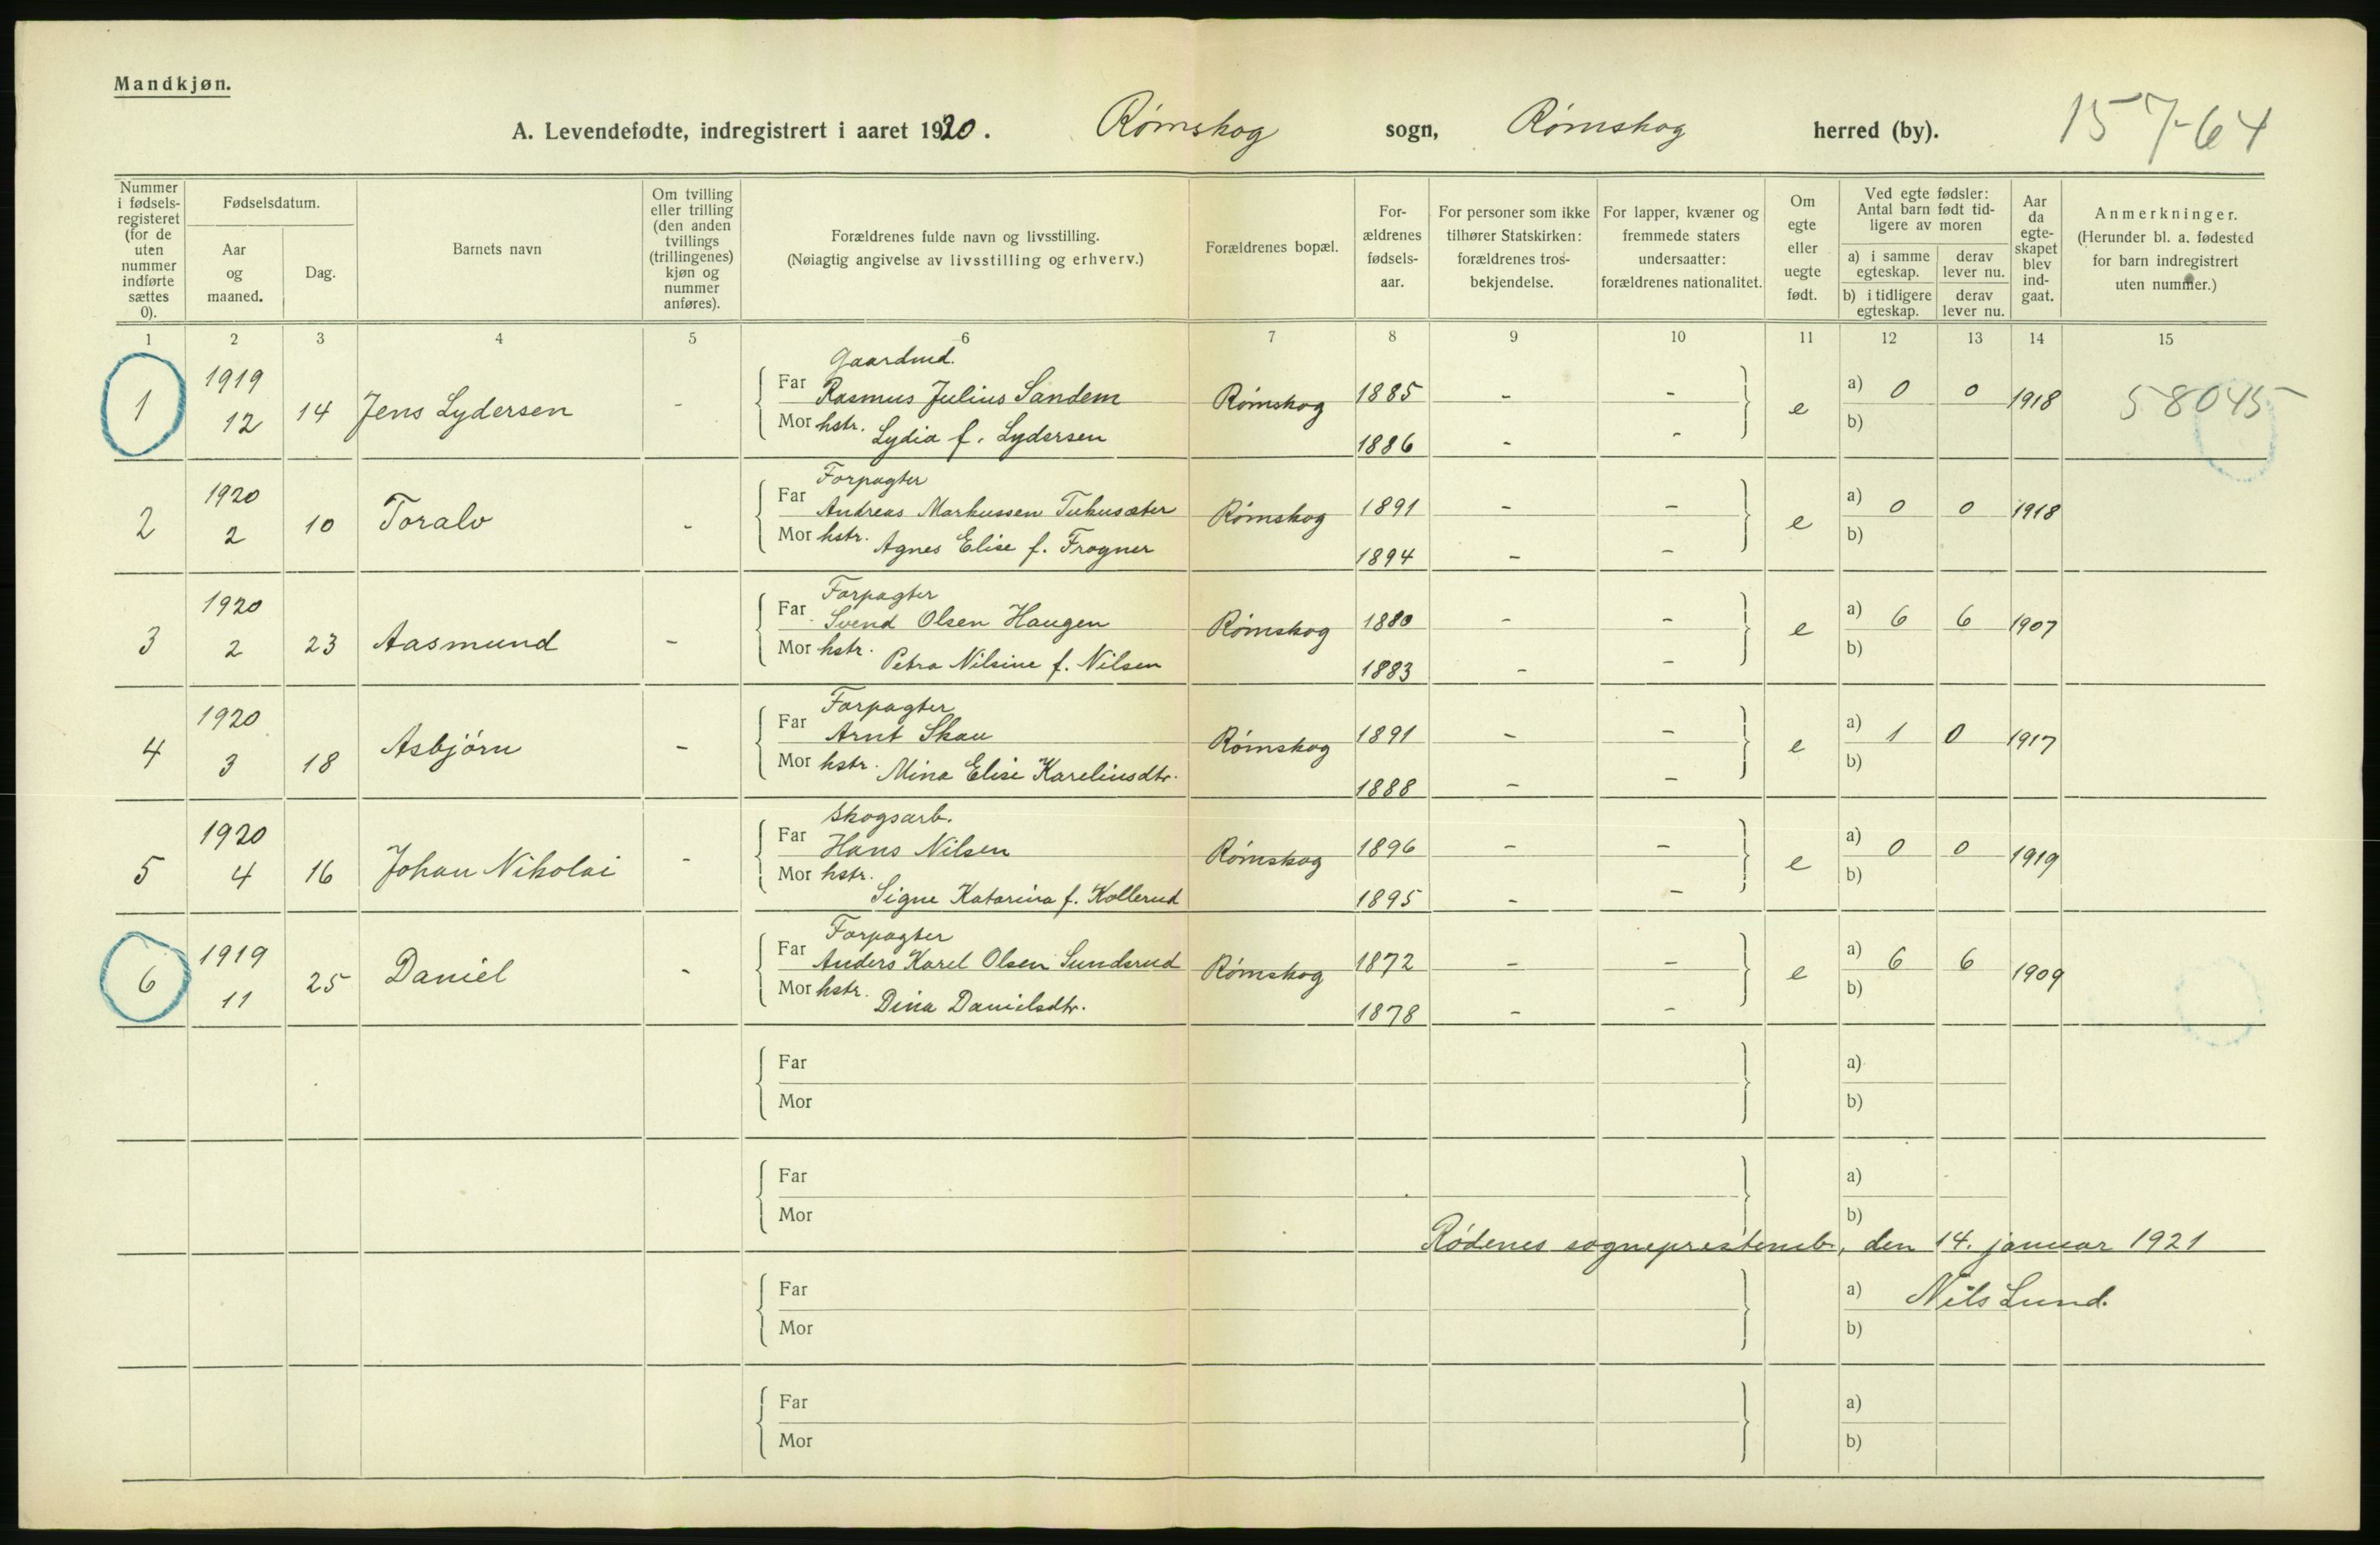 Mandkjøn.
A. Levendefødte, indregistrert i aaret 1920. Rømskog sogn, Rømskog herred (by). 157-64
Nummer i fødsels-registeret (for de uten nummer indførte sættes 0).
Fødselsdatum.
Aar og maaned.
Dag.
Barnets navn
Om tvilling eller trilling (den anden tvillings (trillingenes) kjøn og nummer anføres).
Forældrenes fulde navn og livsstilling.
(Nøiagtig angivelse av livsstilling og erhverv.)
Forældrenes bopæl.
For-ældrenes fødsels-aar.
For personer som ikke tilhører Statskirken: forældrenes tros-bekjendelse.
For lapper, kvæner og fremmede staters undersaatter: forældrenes nationalitet.
Om egte eller uegte født.
Ved egte fødsler: Antal barn født tid-ligere av moren
a) i samme egteskap. derav lever nu.
b) i tidligere egteskap. derav lever nu.
Aar da egte-skapet blev ind-gaat.
Anmerkninger.
(Herunder bl. a. fødested for barn indregistrert uten nummer.)
1 2 3 4 5 6 7 8 9 10 11 12 13 14 15
Gaardmd.
1 1919 12 14 Jens Lydersen - Far Rasmus Julius Sandem Rømskog 1885 - - e a) 0 0 1918 58045
Mor hstr. Lydia f. Lydersen 1886 - - b)
Forpagter
2 1920 2 10 Toralv - Far Andreas Markussen Tukusæter Rømskog 1891 - - e a) 0 0 1918
Mor hstr. Agnes Elise f. Frogner 1894 - - b)
Forpagter
3 1920 2 23 Aasmund - Far Svend Olsen Haugen Rømskog 1880 - - e a) 6 6 1907
Mor hstr. Petra Nilsine f. Nilsen 1883 - - b)
Forpagter
4 1920 3 18 Asbjørn - Far Arnt Skau Rømskog 1891 - - e a) 1 0 1917
Mor hstr. Mina Elise Kareliusdtr. 1888 - - b)
Skogsarb.
5 1920 4 16 Johan Nikolai - Far Hans Nilsen Rømskog 1896 - - e a) 0 0 1919
Mor hstr. Signe Katarina f. Kollerud 1895 - - b)
Forpagter
6 1919 11 25 Daniel - Far Anders Karel Olsen Sundsrud Rømskog 1872 - - e a) 6 6 1909
Mor hstr. Dina Danielsdtr. 1878 - - b)
Far a)
Mor b)
Far a)
Mor b)
Rødenes sogneprestemb., den 14. januar 1921
Far a) Nils Lund.
Mor b)
Far a)
Mor b)